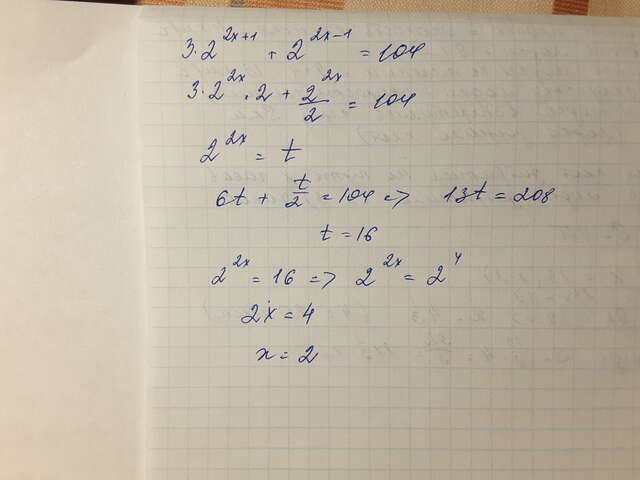 3·2^{2x+1} + 2^{2x-1} = 104
3·2^{2x}·2 + \frac{2^{2x}}{2} = 104
2^{2x} = t
6t + \frac{t}{2} = 104 => 13t = 208
t = 16
2^{2x} = 16 => 2^{2x} = 2^4
2x = 4
x = 2